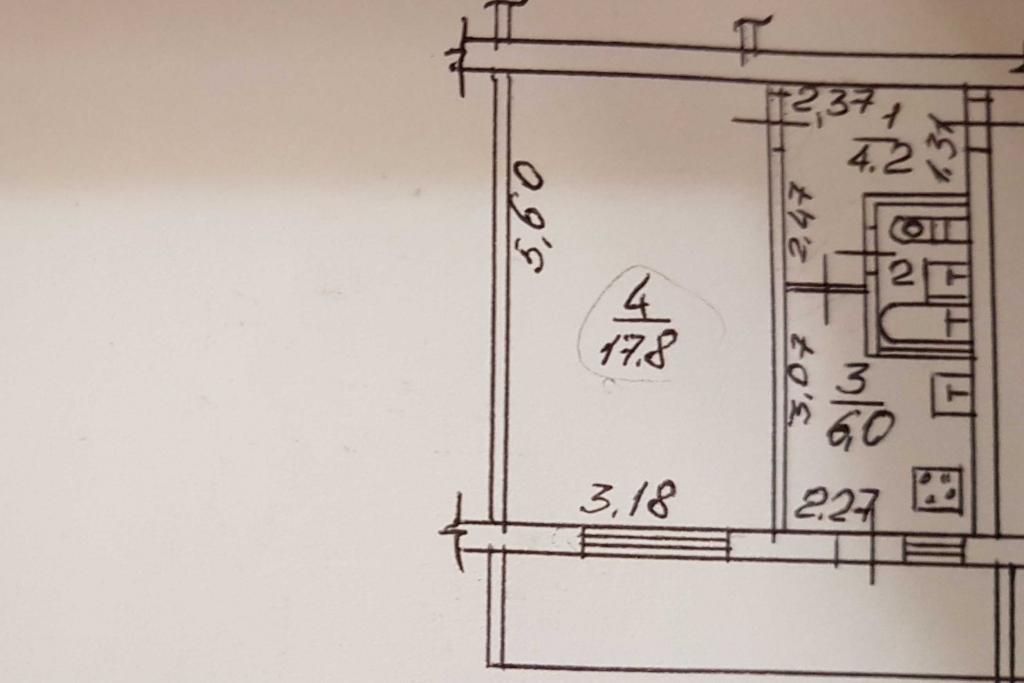 2,37
1
4.2
1,31
5,60
2,47
2
T
4
17.8
T
3,07
3
6,0
T
3,18
2.27